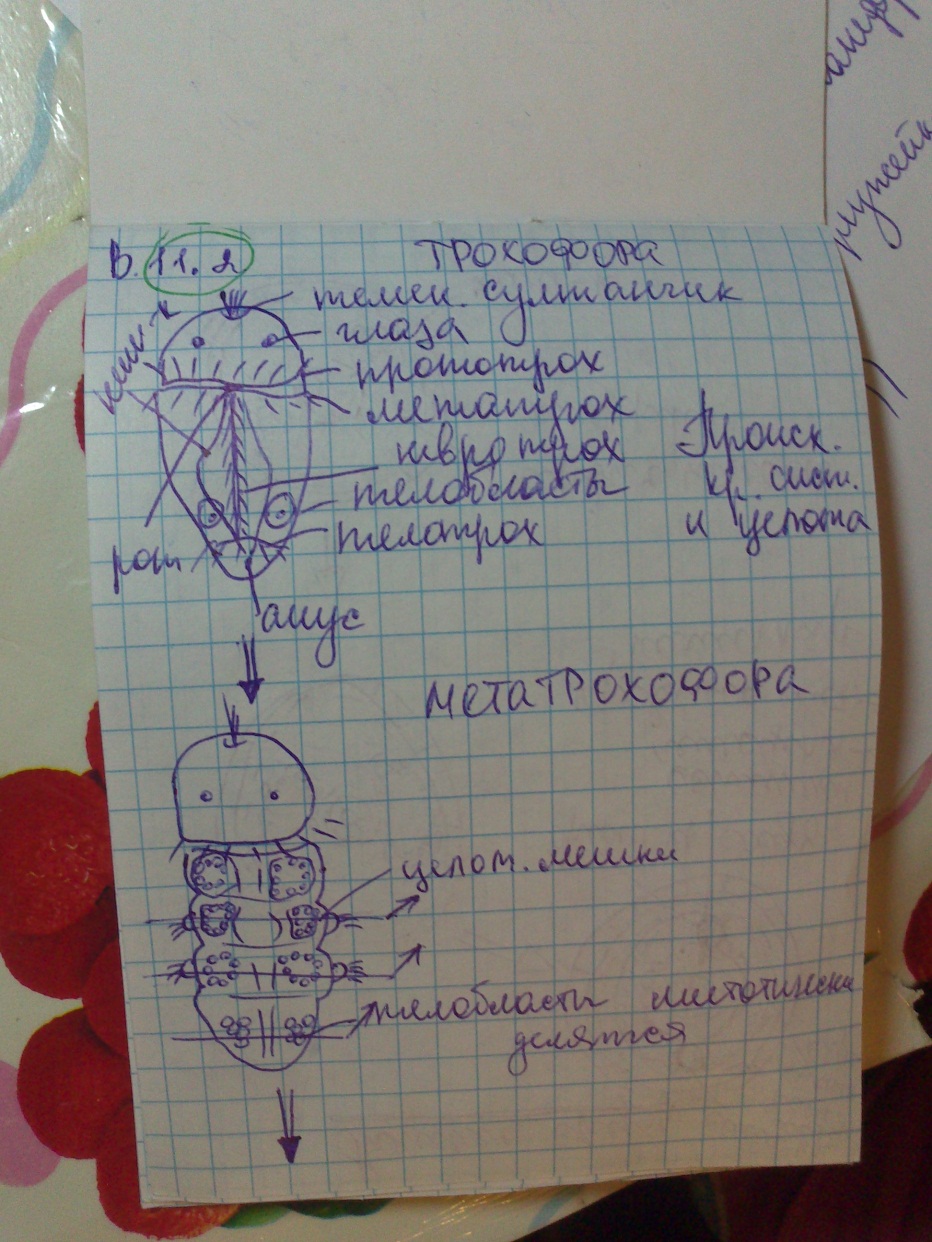 В. 11.2 ТРОХОФОРА
темен. султанчик
глаза
прототрох
метатрох
невротрох
телобласты
телотрох
рот
анус
Происх.
кр. сист.
и целома
МЕТАТРОХОФОРА
целом. мешки
телобласты митотически
делятся